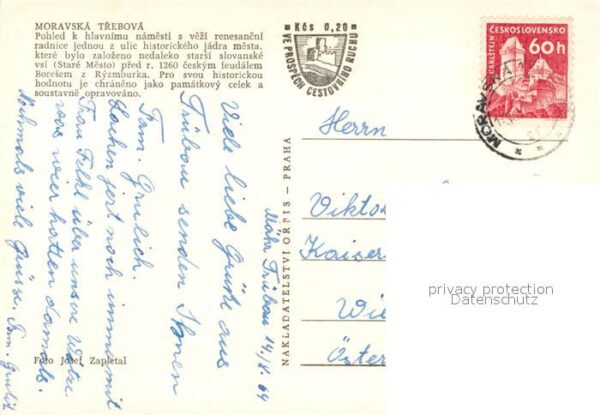 MORAVSKÁ TŘEBOVÁ
Pohled k hlavnímu náměstí s věží renesanční
radnice jednou z ulic historického jádra města,
které bylo založeno nedaleko starší slovanské
vsi (Staré Město) před r. 1260 českým feudálem
Borešem z Rýzmburka. Pro svou historickou
hodnotu je chráněno jako památkový celek a
soustavně opravováno.
Kčs 0,20
VE PROSPĚCH CESTOVNÍHO RUCHU
KARLŠTEJN
ČESKOSLOVENSKO
60h
MORAVSKÁ
Mähr. Trübau 14./8. 64
Viele liebe Grüße aus
Trübau senden Ihnen
Fam. Grulich.
lachen jetzt noch immer mit
Frau über unsere Witze
was wir hatten damals.
Nochmals viele Grüsse. Fam. Grulich
NAKLADATELSTVÍ ORBIS — PRAHA
Herrn
Viktor
Kaiser
Wie
Öster
privacy protection
Datenschutz
Foto Josef Zapletal